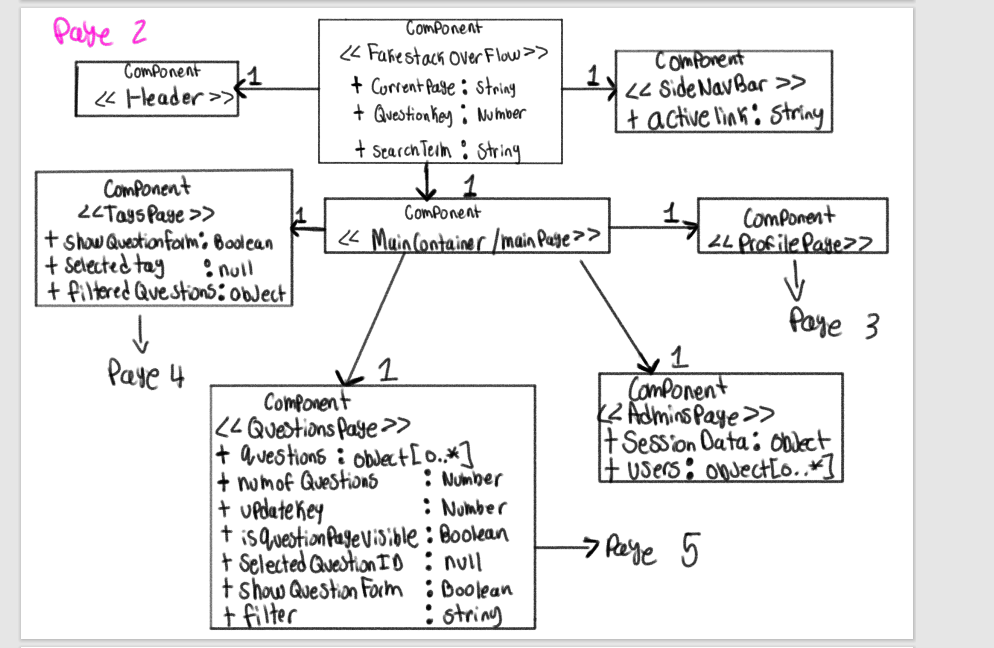 Page 2
Component
<<FakestackOverFlow>>
+ CurrentPage : String
+ QuestionKey : Number
+ searchTerm : String
Component
<< Header >>
1
1
Component
<< SideNavBar >>
+ activelink : String
1
Component
<<TagsPage>>
+ ShowQuestionForm : Boolean
+ Selectedtag : null
+ filteredQuestions : object
1
Component
<< MainContainer /mainPage>>
1
Component
<<ProfilePage>>
Page 3
Page 4
1
Component
<<QuestionsPage>>
+ questions : object[0..*]
+ numof Questions : Number
+ updateKey : Number
+ isquestionPageVisible : Boolean
+ Selected QuestionID : null
+ Show Question Form : Boolean
+ filter : string
1
Component
<<AdminsPage>>
+ Session Data : object
+ users : object[0..*]
Page 5